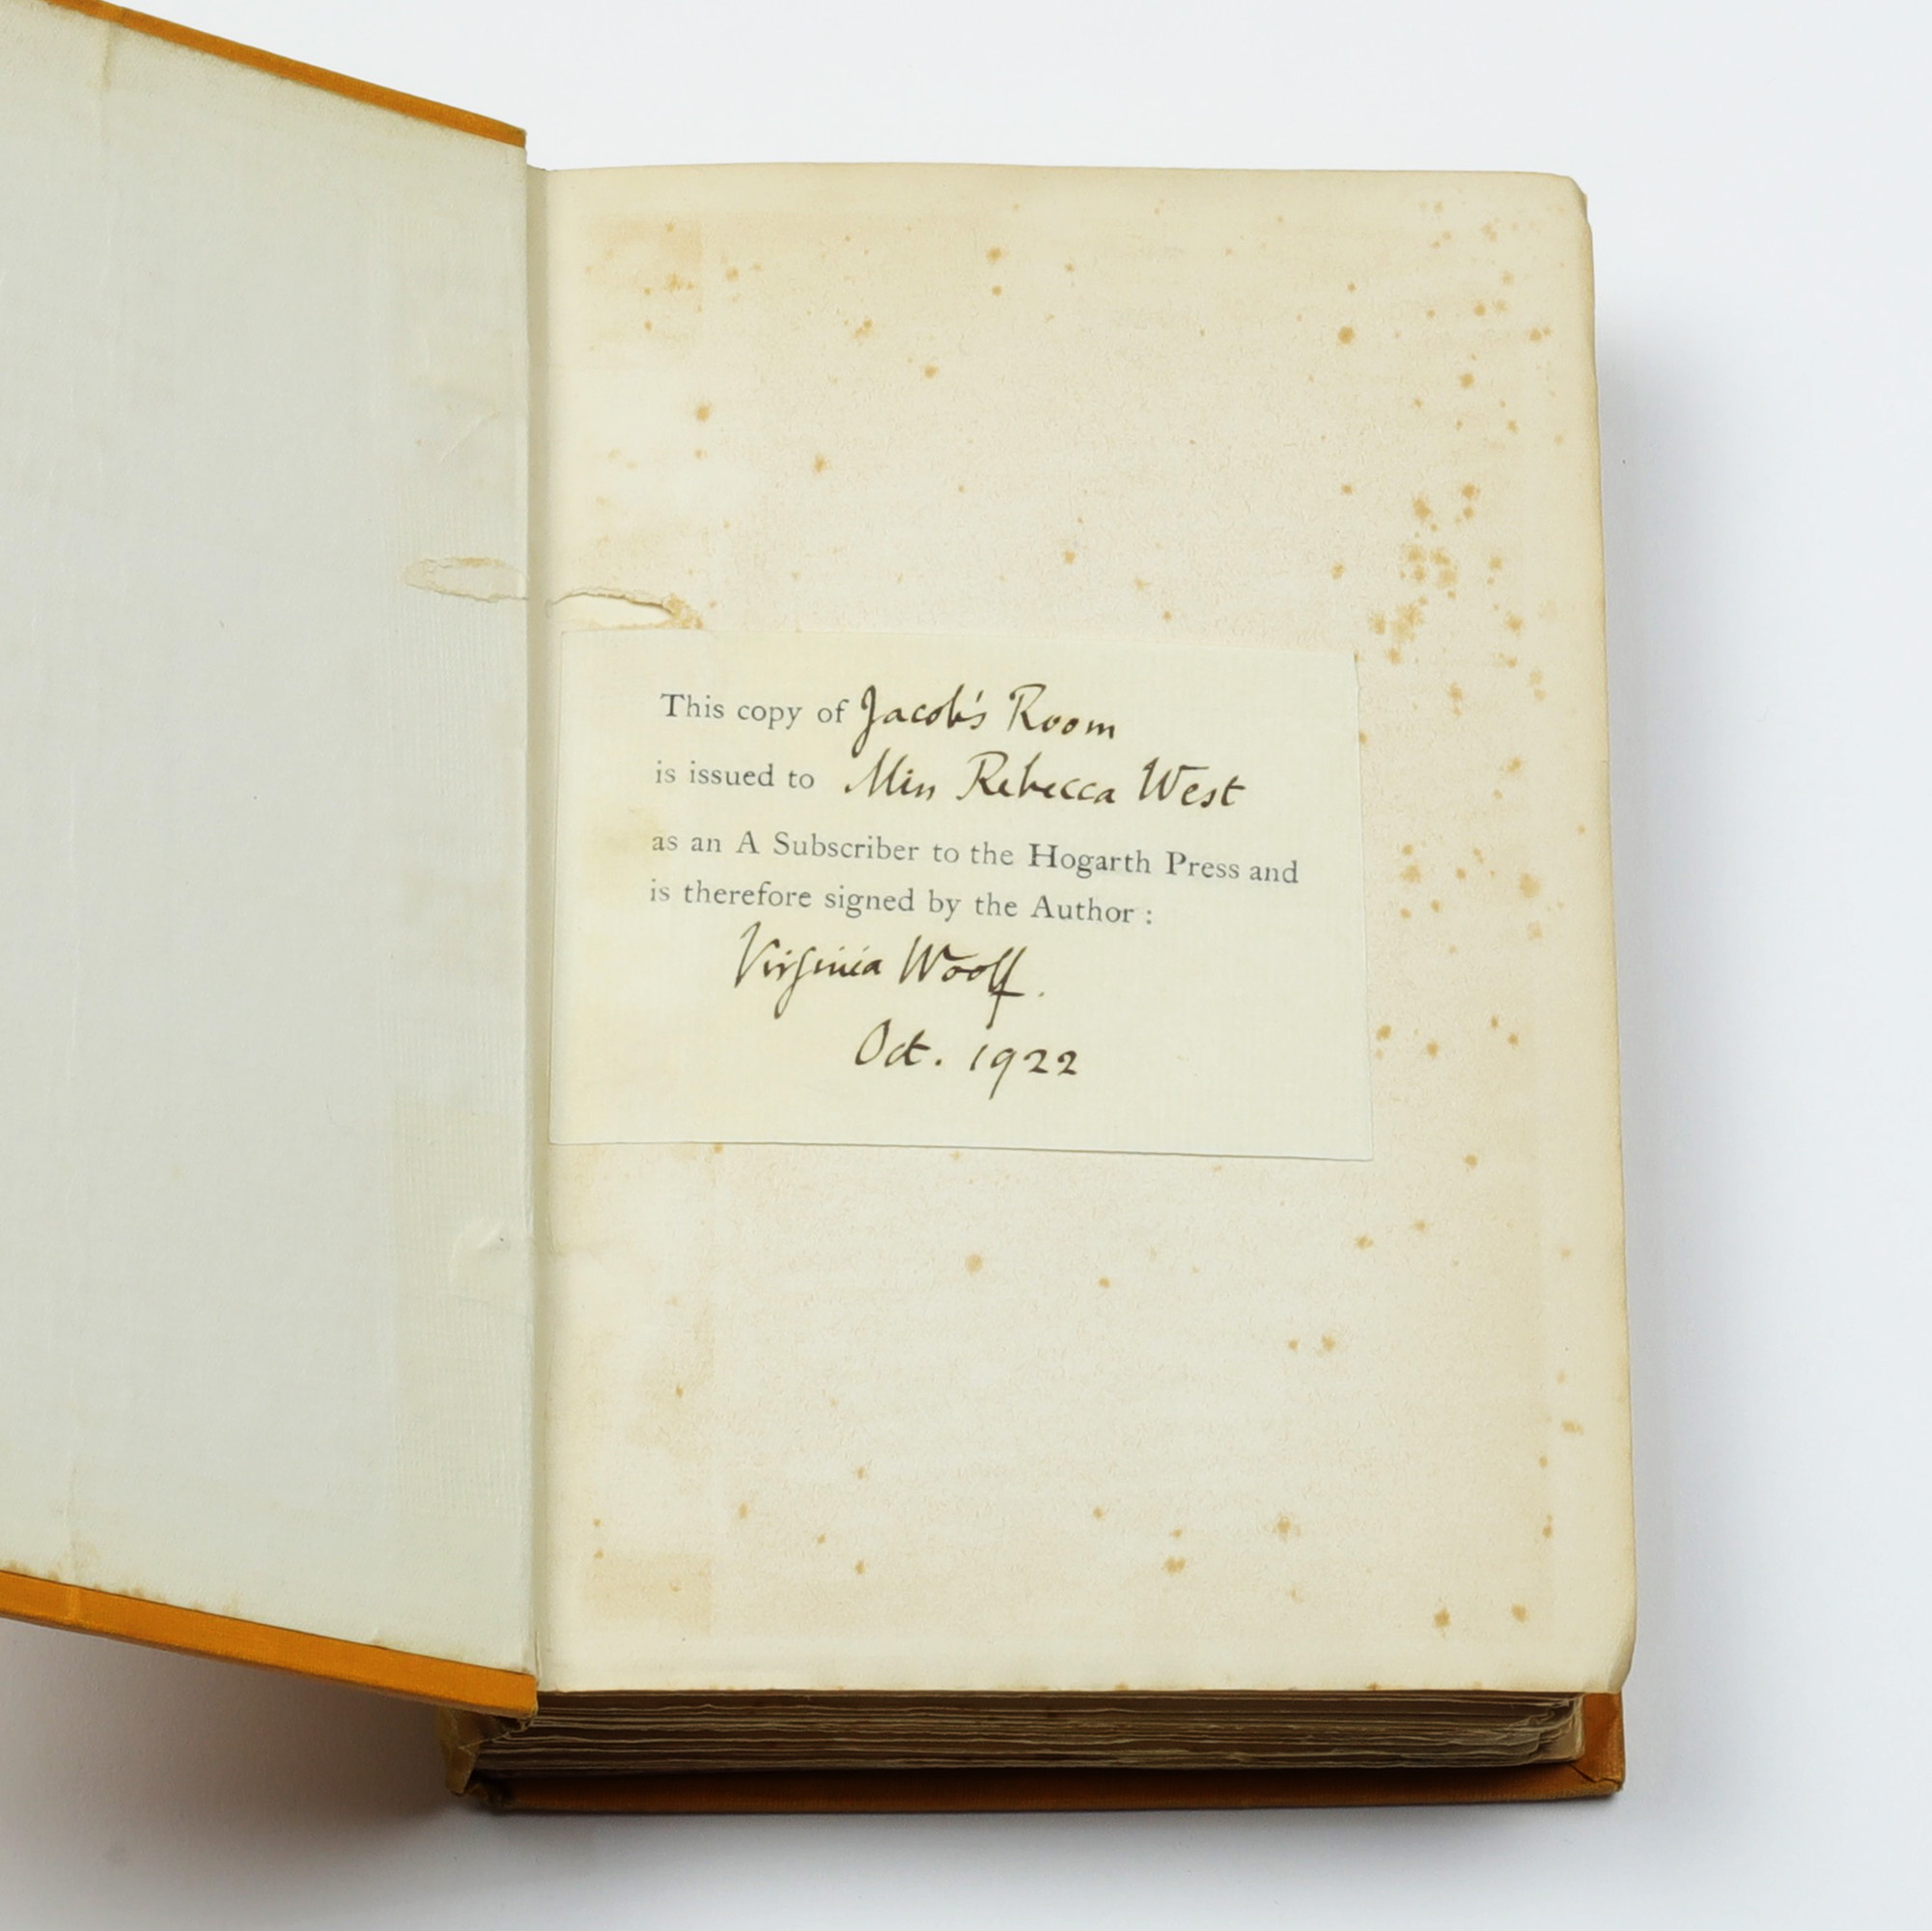 This copy of Jacob's Room
is issued to Miss Rebecca West
as an A Subscriber to the Hogarth Press and
is therefore signed by the Author :
Virginia Woolf.
Oct. 1922